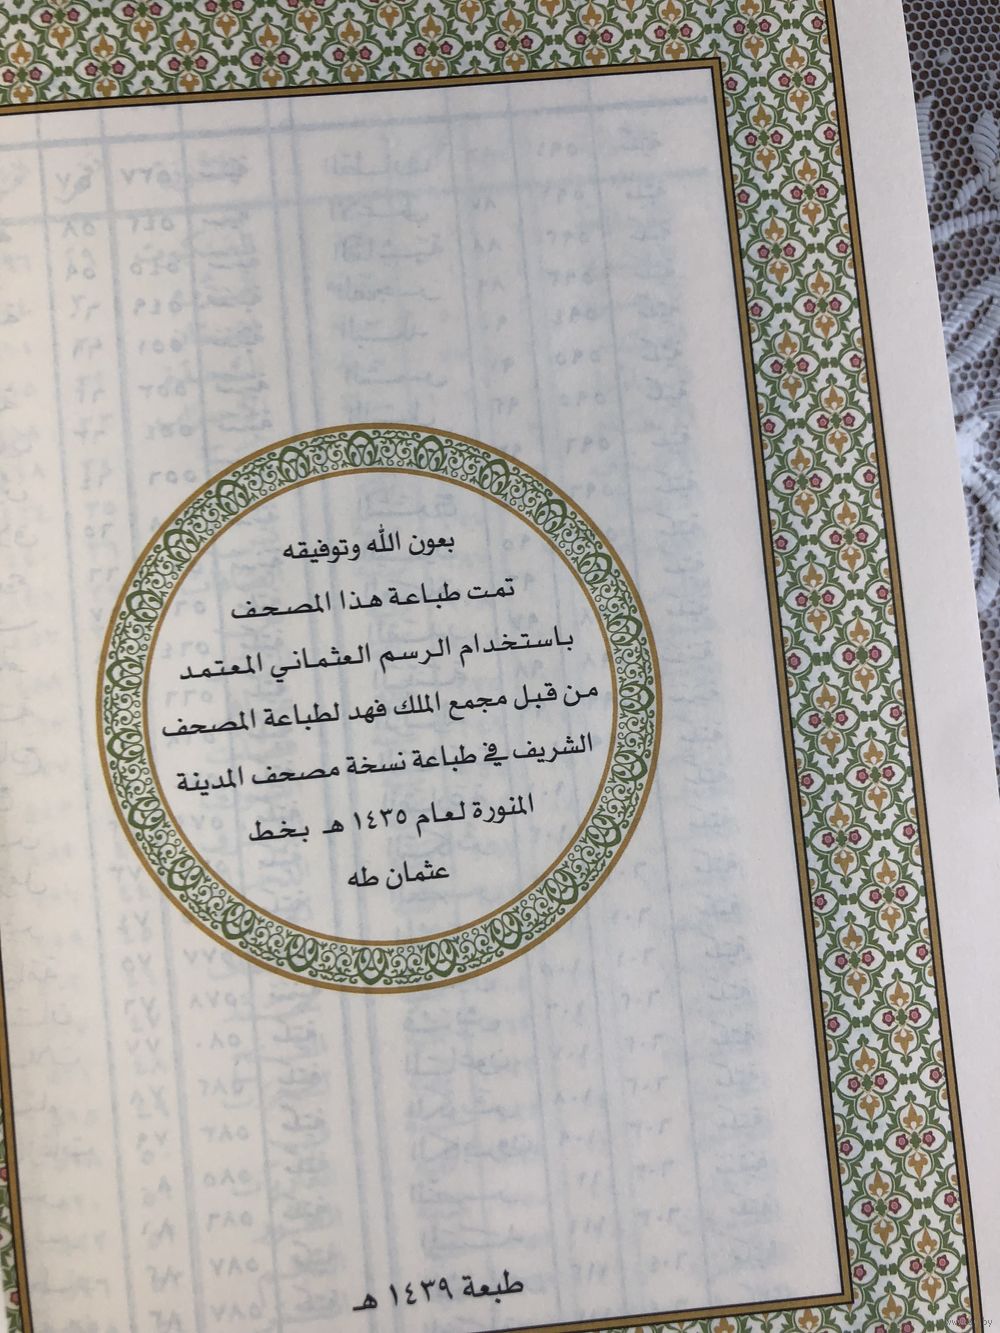 بعون الله وتوفيقه
تمت طباعة هذا المصحف
باستخدام الرسم العثماني المعتمد
من قبل مجمع الملك فهد لطباعة المصحف
الشريف في طباعة نسخة مصحف المدينة
المنورة لعام ١٤٣٥ هـ بخط
عثمان طه
طبعة ١٤٣٩ هـ